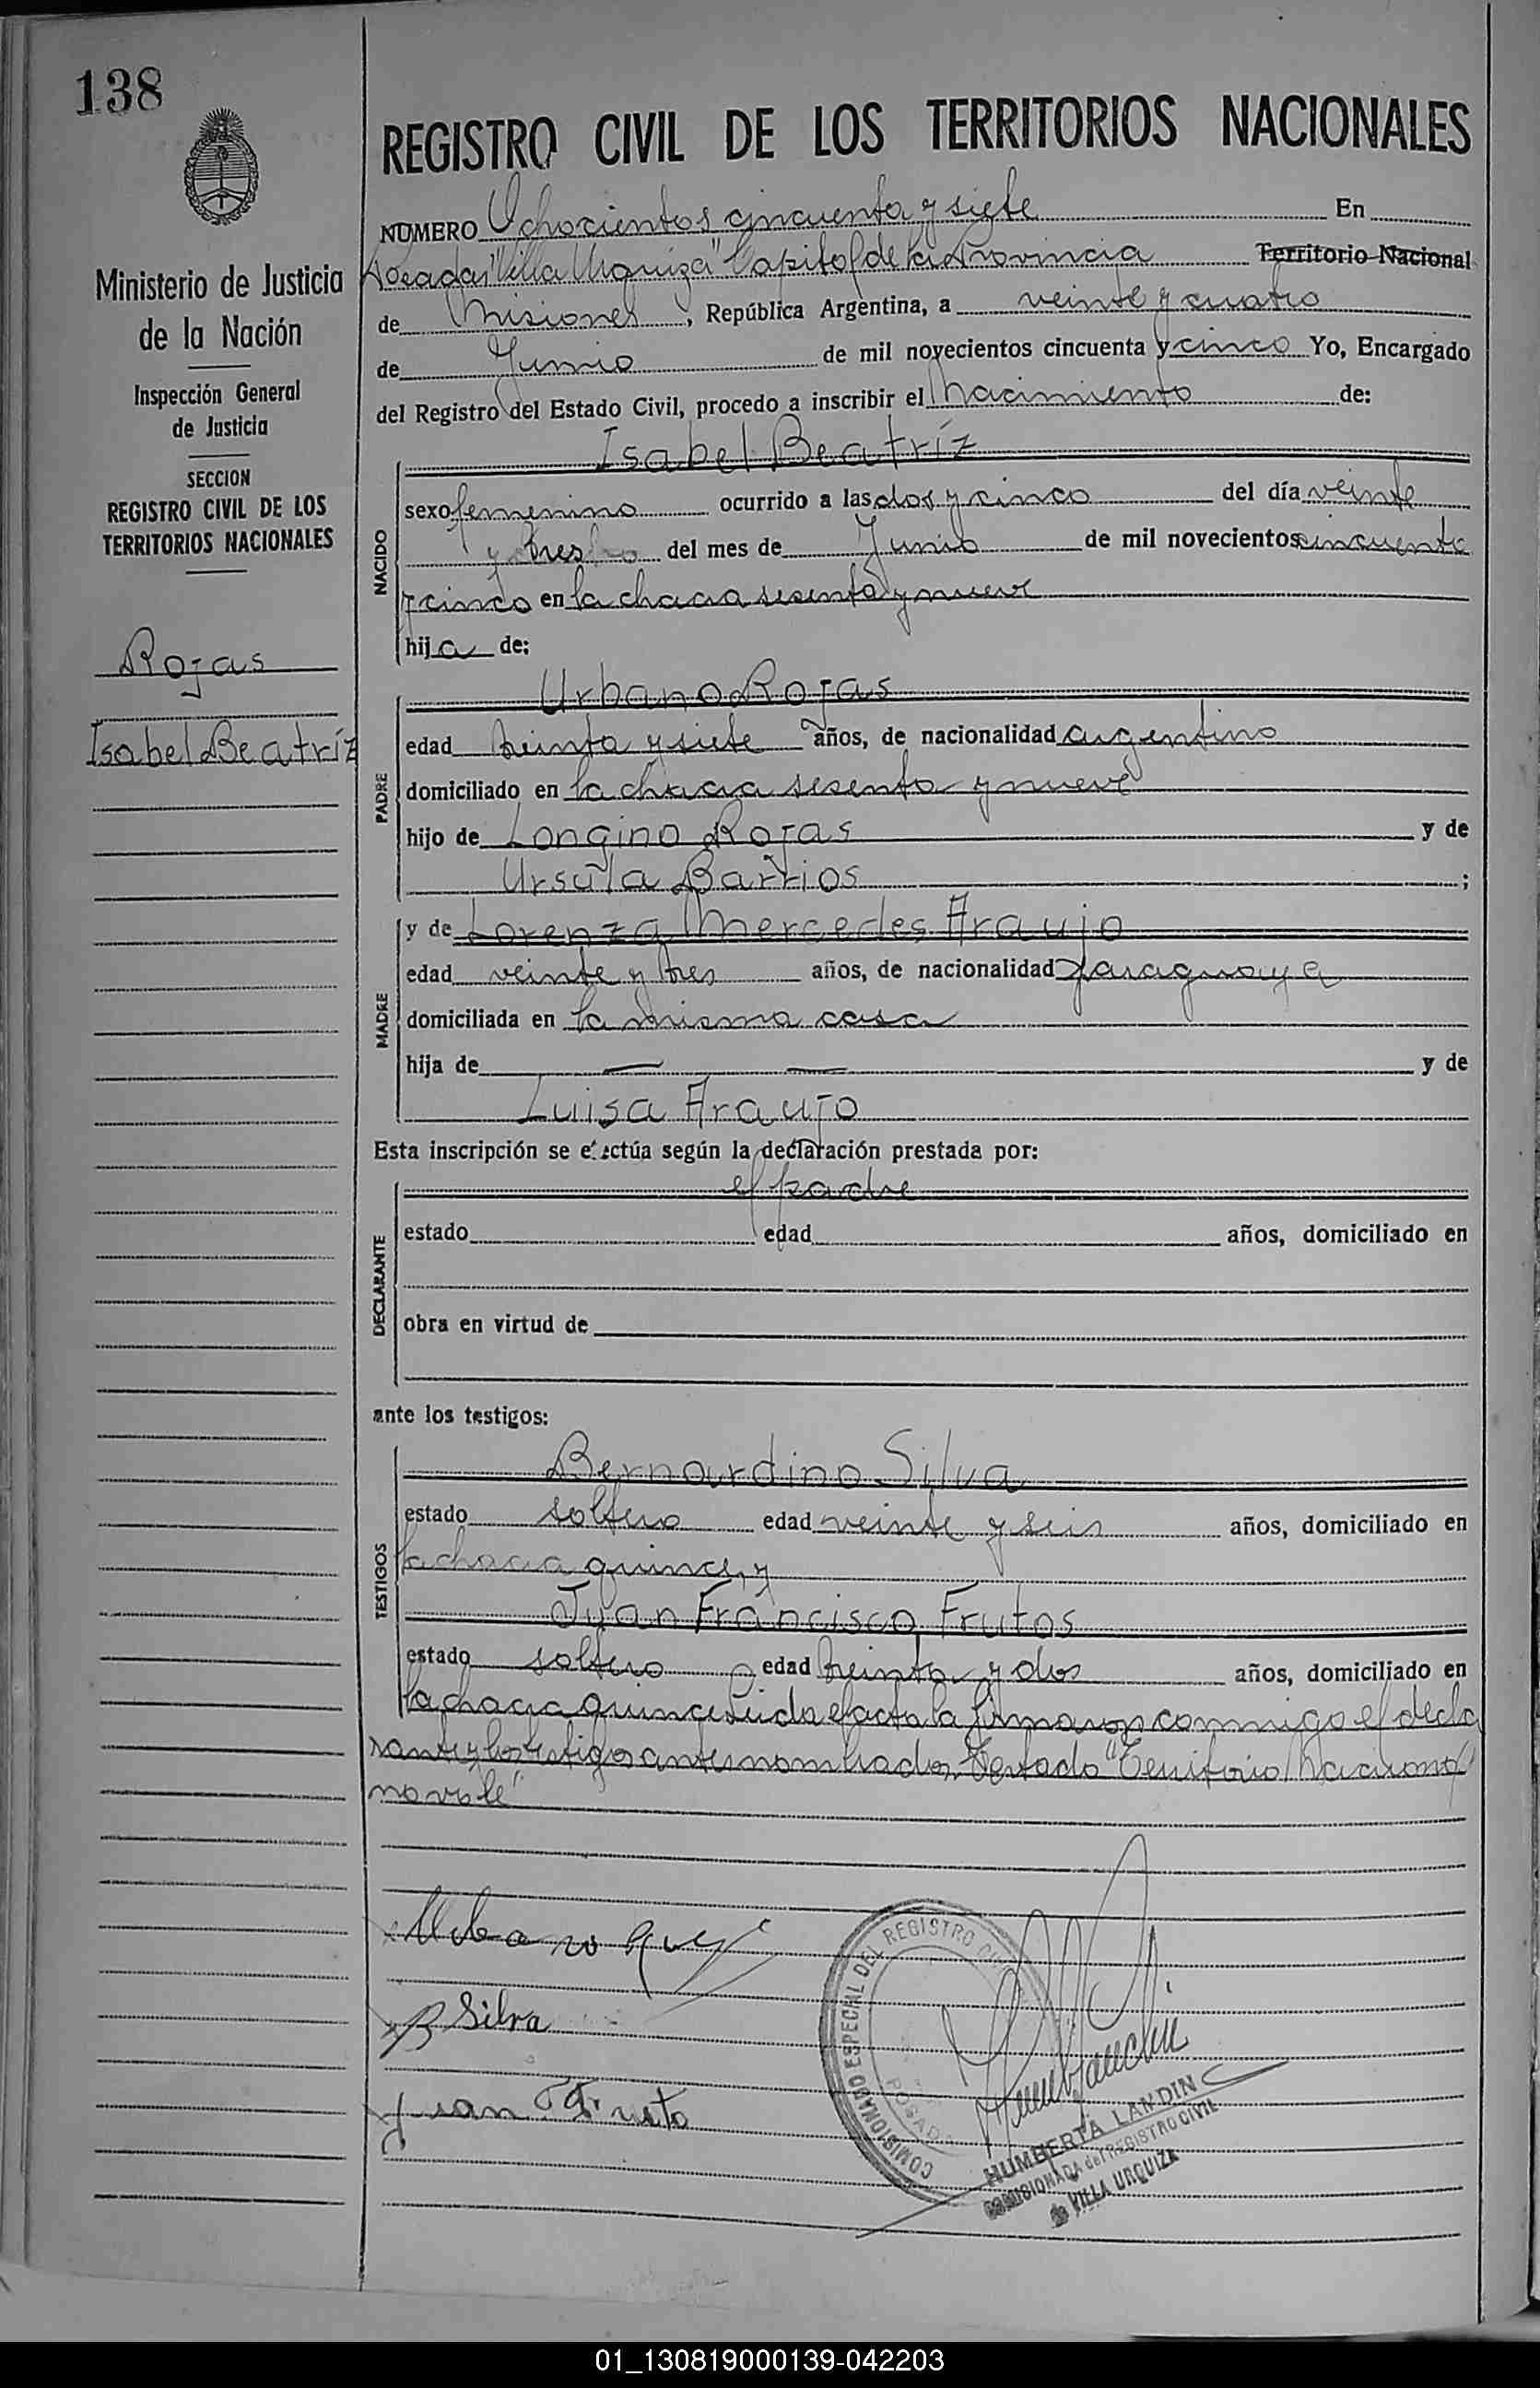 138
Ministerio de Justicia
de la Nación
Inspección General
de Justicia
SECCION
REGISTRO CIVIL DE LOS
TERRITORIOS NACIONALES
Rojas
Isabel Beatríz
REGISTRO CIVIL DE LOS TERRITORIOS NACIONALES
NÚMERO Ochocientos cincuenta y siete En
Posadas "Villa Urquiza" Capital de la Provincia Territorio Nacional
de Misiones, República Argentina, a veinte y cuatro
de Junio de mil novecientos cincuenta y cinco Yo, Encargado
del Registro del Estado Civil, procedo a inscribir el Nacimiento de:
Isabel Beatríz
NACIDO
sexo femenino ocurrido a las dos y cinco del día veinte
y tres del mes de Junio de mil novecientos cincuenta
y cinco en la chacra sesenta y nueve
hija de:
Urbano Rojas
PADRE
edad treinta y siete años, de nacionalidad argentino
domiciliado en la chacra sesenta y nueve
hijo de Longino Rojas y de
Ursula Barrios;
y de Lorenza Mercedes Araujo
MADRE
edad veinte y tres años, de nacionalidad paraguaya
domiciliada en la misma casa
hija de — — y de
Luisa Araujo
Esta inscripción se efectúa según la declaración prestada por:
el padre
DECLARANTE
estado edad años, domiciliado en
obra en virtud de
ante los testigos:
Bernardino Silva
TESTIGOS
estado soltero edad veinte y seis años, domiciliado en
la chacra quince, y
Juan Francisco Frutos
estado soltero edad treinta y dos años, domiciliado en
la chacra quince Leida el acta la firmaron conmigo el decla
rante y los testigos antes nombrados. Testado "Territorio Nacional
no vale"
Urbano
B Silva
Juan F Fruto
COMISIONADO ESPECIAL DEL REGISTRO
POSADAS
HUMBERTA LANDIN
COMISIONADA del REGISTRO CIVIL
de VILLA URQUIZA
01_130819000139-042203